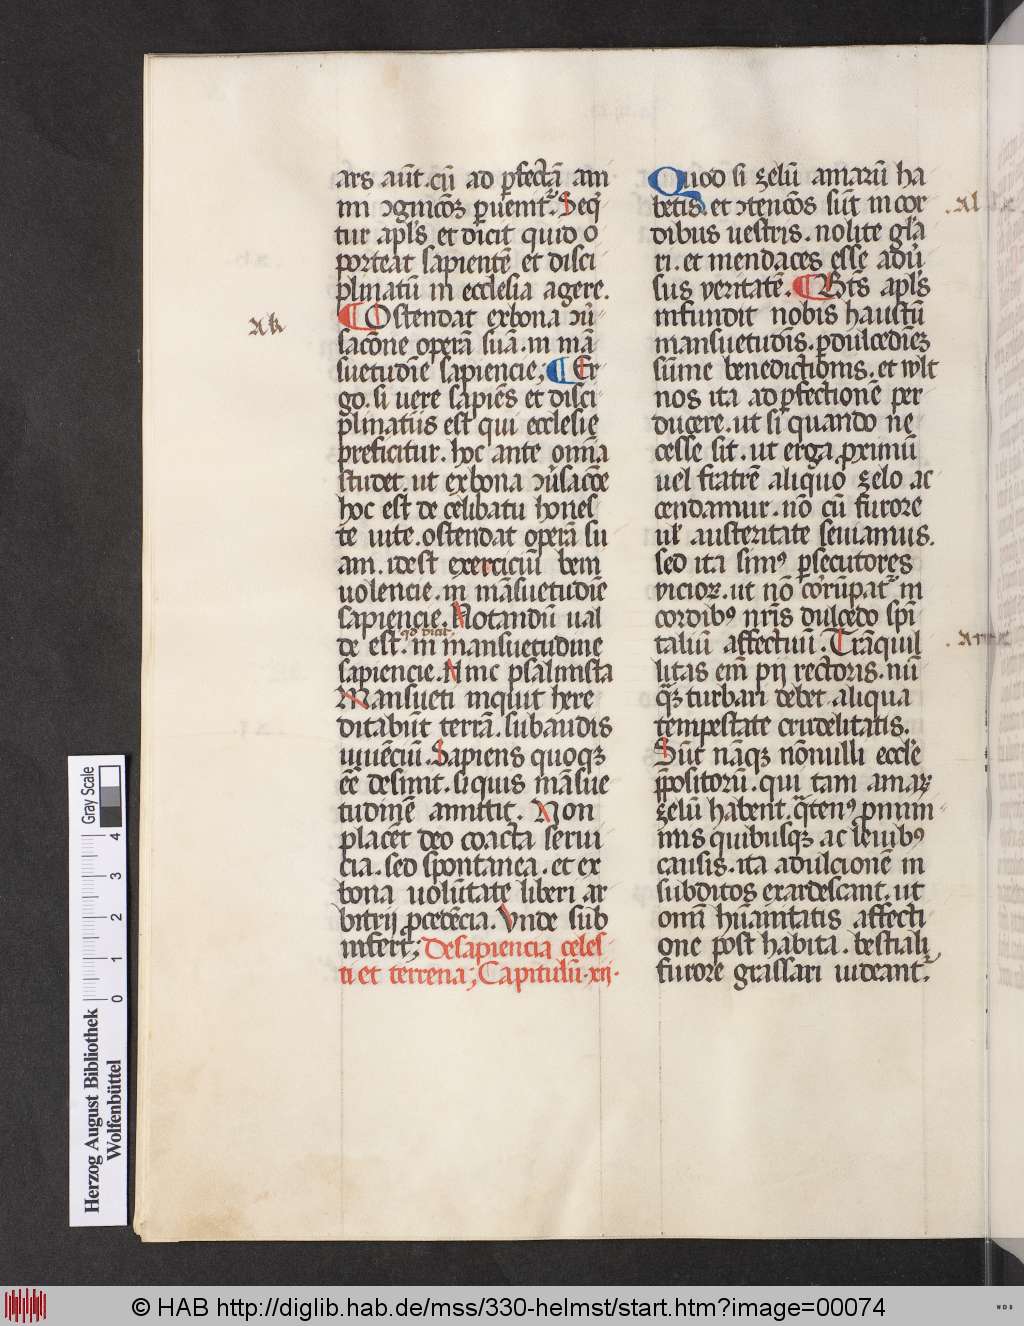 ars aūt. cū ad ꝑfectā am
mi ↄgnicōꝫ ꝑuenit᷑. Seq̄
tur apl's et dicit quid o
porteat sapientē et disci
plinatū in ecclesia agere.
¶ Ostendat ex bona ↄū̉
sacōne operā suā. in mā
suetudīe sapiencie; ¶ Er
go. si uere sapiēs et disci
plinatus est qui ecclesie
preficitur. hoc ante om̄ia
studet. ut ex bona ↄū̉sacōe
hoc est de celibatu hones
te uite. ostendat operā su
am. idest exerciciū beni
uolencie. in māsuetudīe
sapiencie. Notandū ual
de est. qd dicit in mansuetudine
sapiencie. Hinc psalmista
Mansueti inquit here
ditabūt terrā. subaudis
uiuēciū. Sapiens quoqꝫ
eē desinit. si quis māsue
tudinē amittit. Non
placet deo coacta serui
cia. sed spontanea. et ex
bona uolūtate liberi ar
bitrij ꝓcedēcia. Vnde sub
infert; De sapiencia celes
ti et terrena; Capitulū .xij.
ak
Quod si zelū amarū ha
betis. et ↄtencōes sūt in cor
dibus uestris. nolite gl'a
ri. et mendaces esse adū̉
sus veritatē. ¶ Bt̄s apl's
infundit nobis haustū
mansuetudīs. ꝑ dulcedīeꝫ
sūme benedictionis. et wlt
nos ita ad ꝑfectionē per
ducere. ut si quando ne
cesse sit. ut erga ꝓximū
uel fratrē aliquo zelo ac
cendamur. nō cū furore
ul' austeritate seuiamus.
sed ita simꝰ ꝑsecutores
vicioꝝ. ut nō corrūpat᷑ in
cordibꝰ nr̄is dulcedo spi
taliū affectuū. Trāquil
litas em̄ pij rectoris. nū
q̄ꝫ turbari debet aliqua
tempestate crudelitatis.
Sūt nāqꝫ nōnulli eccl'e
ꝓpositorū. qui tam amaꝝ
zelū habent. q̄tenꝰ ꝓ mini
mis quibusqꝫ ac leuibꝰ
causis. ita ad ulcionē in
subditos exardescant. ut
om̄i hūanitatis affecti
one post habita. bestiali
furore grassari uideant᷑.
.al
Herzog August Bibliothek
Wolfenbüttel
0 1 2 3 4
Gray Scale
© HAB http://diglib.hab.de/mss/330-helmst/start.htm?image=00074